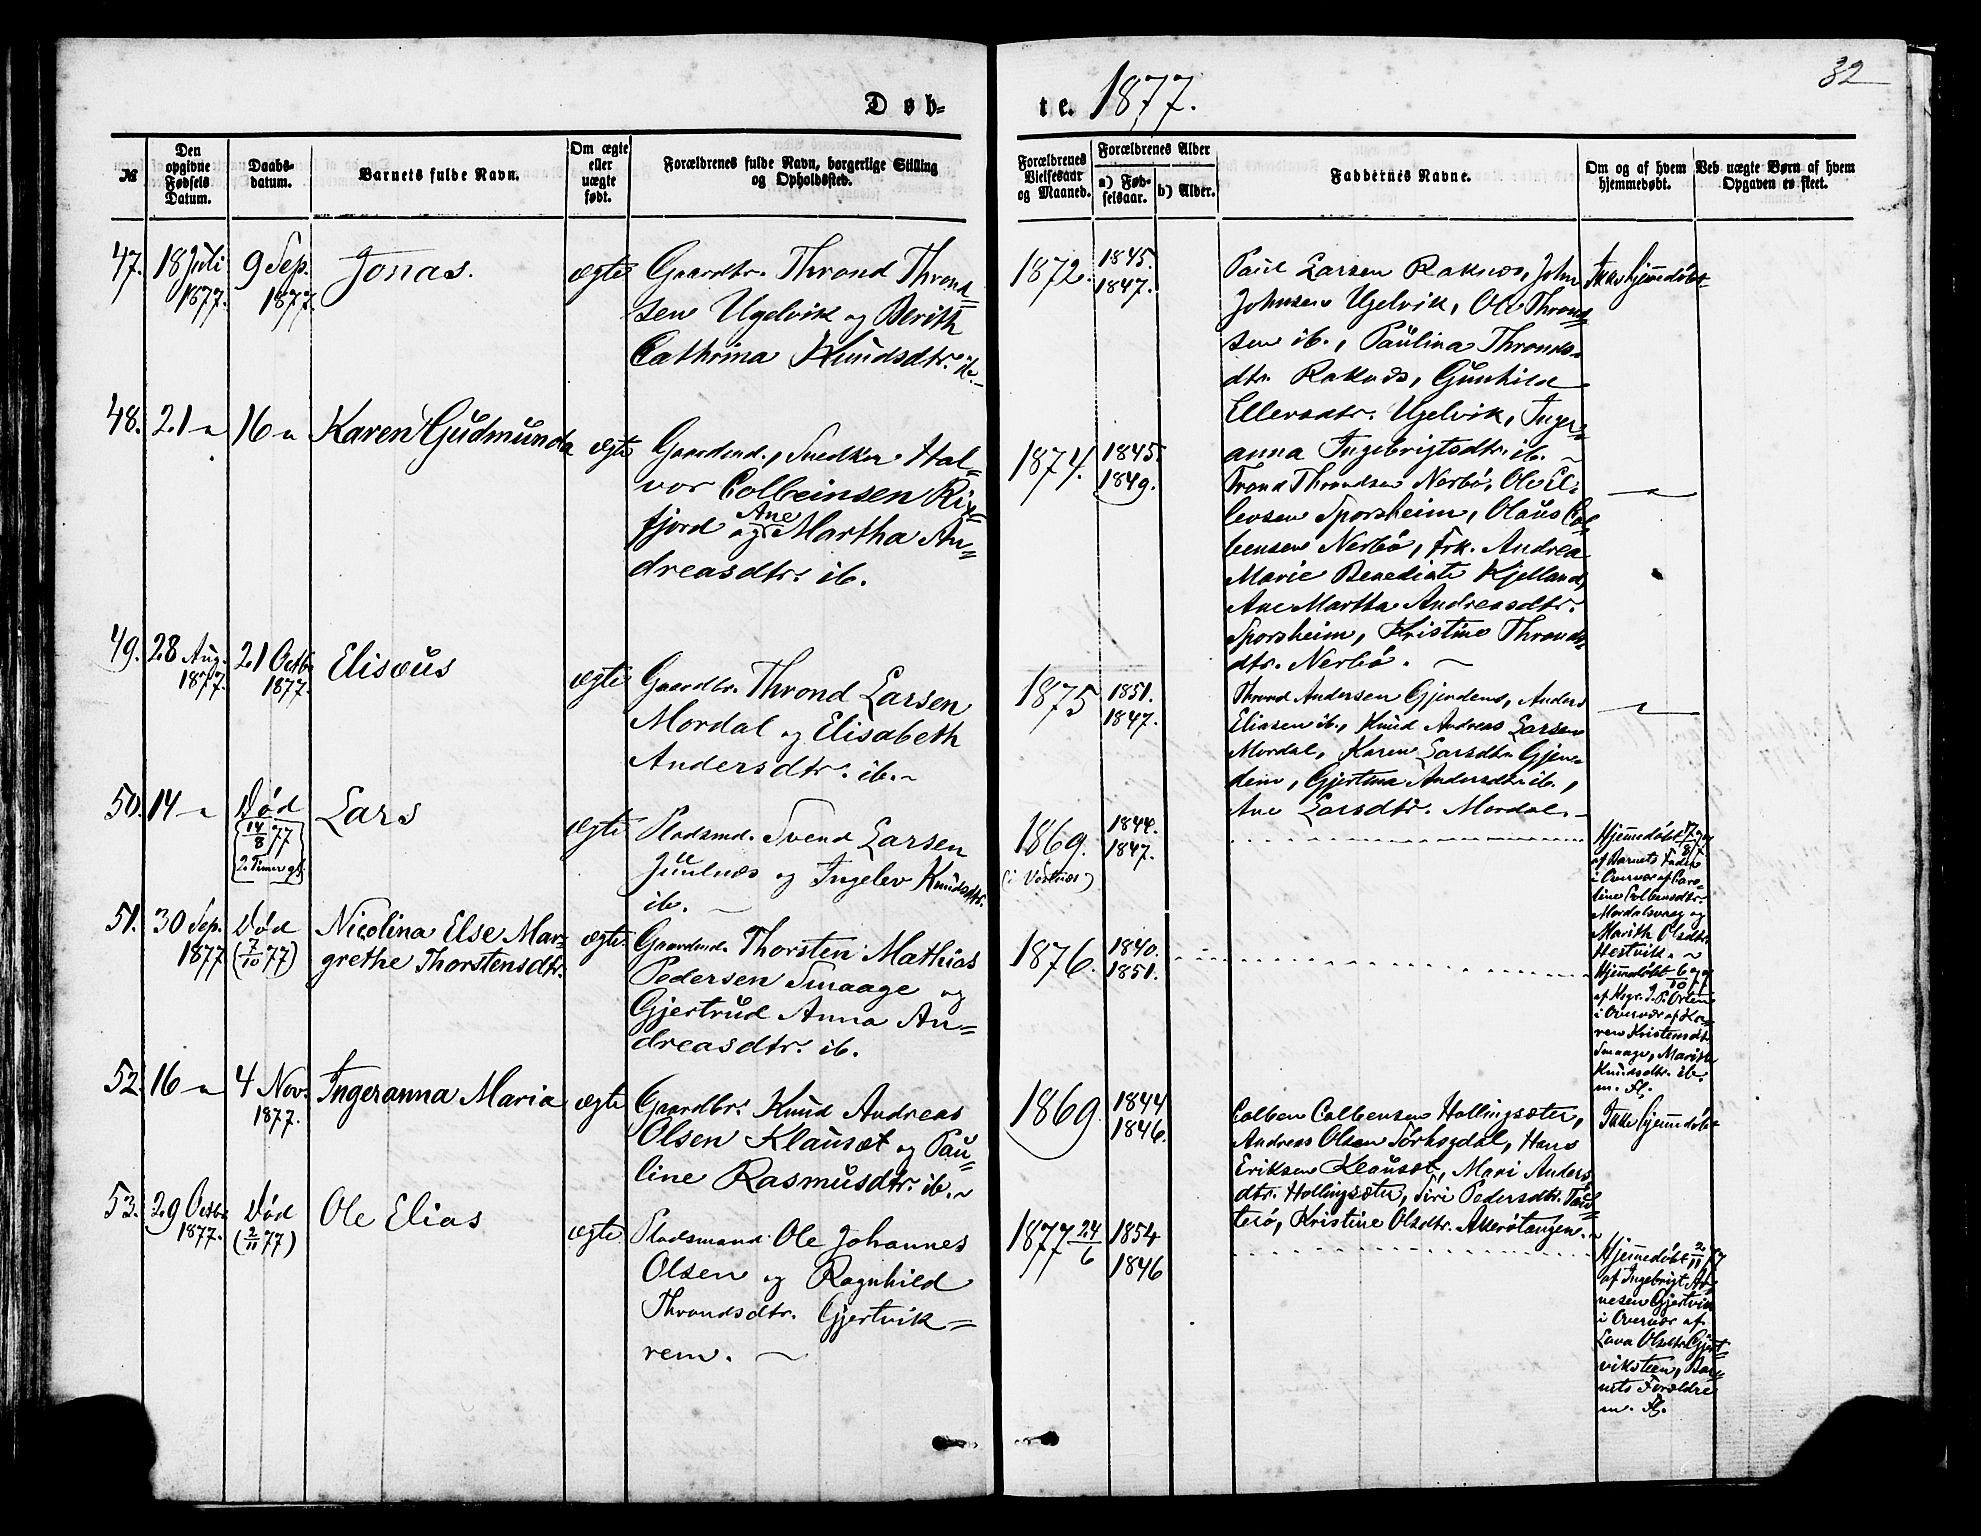 32
Døb-
te. 1877.
№
Den opgivne Fødsels Datum.
Daabs-datum.
Barnets fulde Navn.
Om ægte eller uægte født.
Forældrenes fulde Navn, borgerlige Stilling og Opholdssted.
Forældrenes Vielsesaar og Maaned.
Forældrenes Alder
a) Fødselsaar.
b) Alder.
Faddernes Navne.
Om og af hvem hjemmedøbt.
Ved uægte Børn af hvem Opgaven er skeet.
47. 18 Juli 1877. 9 Sep. 1877. Jonas. ægte
Gaardbr. Thrond Thrond-
sen Ugelvik og Berith
Cathrina Knudsdtr. ib.
1872. 1845. 1847.
Paul Larsen Raknæs, John
Johnsen Ugelvik, Ole Thrond-
sen ib., Paulina Thronds-
dtr. Raknæs, Gunhild
Ellersdtr. Ugelvik, Inger-
anna Ingebrigtsdtr. ib.
Ikke hjemmedøbt
48. 21 " 16 " Karen Gudmunda ægte
Gaardmd., Snedker Hal-
vor Colbeinsen Rix-
fjord og Ane Martha An-
dreasdtr. ib.
1874. 1845. 1849.
Trond Throndsen Nerbø, Ole El-
levsen Sporsheim, Olaus Col-
bensen Nerbø, Frk. Andrea
Marie Benedicte Kjelland,
Ane Martha Andreasdtr.
Sporsheim, Kristine Thronds-
dtr. Nerbø.
49. 28 Aug. 1877. 21 Octbr. 1877. Elisæus ægte
Gaardbr. Thrond Larsen
Mordal og Elisabeth
Andersdtr. ib.
1875 1851. 1847.
Thrond Andersen Gjendem, Anders
Eliasen ib., Knud Andreas Larsen
Mordal, Karen Larsdtr. Gjen-
dem, Gjertina Andersdtr. ib.,
Ane Larsdtr. Mordal.
50. 14 " Død 14/8 77 2 Timer gl. Lars ægte
Pladsmd. Svend Larsen
Juulnæs og Ingelev Knudsdtr.
ib.
1869. (i Vestnæs) 1844. 1847.
Hjemmedøbt
af Barnets Fader
i Overvær af Caro-
line Colbensdtr.
Mordalsvaag og
Marith Olsdtr.
Hestvik.
51. 30 Sep. 1877 Død (7/10 77) Nicolina Else Mar-
grethe Thorstensdtr. ægte
Gaardmd. Thorsten Mathias
Pedersen Smaage og
Gjertrud Anna An-
dreasdtr. ib.
1876. 1840. 1851.
Hjemmedøbt 6/10 77
af Kgr. J. P. Orten
i Overvær af Ka-
ren Kristensdtr.
Smaage, Marith
Knudsdtr. ib.
m. Fl.
52. 16 " 4 Nov. 1877. Ingeranna Maria ægte
Gaardbr. Knud Andreas
Olsen Klauset og Pau-
line Rasmusdtr. ib.
1869 1844 1846.
Colben Colbensen Hollingsæter,
Andreas Olsen Torhogdal, Hans
Eriksen Klauset, Mari Anders-
dtr. Hollingsæter, Siri Pedersdtr. Taus-
terø, Kristine Olsdtr. Akerøtangen.
Ikke hjemmedøbt
53. 29 Octbr. 1877. Død (2/11 77) Ole Elias ægte
Pladsmand Ole Johannes
Olsen og Ragnhild
Throndsdtr. Gjertvik-
rem.
1877 24/6 1854 1846
Hjemmedøbt 2/11 77
af Ingebrigt Ar-
nesen Gjertvik
i Overvær af
Lava Olsdtr. Gjert-
viksteen, Bar-
nets Forældre
m. Fl.